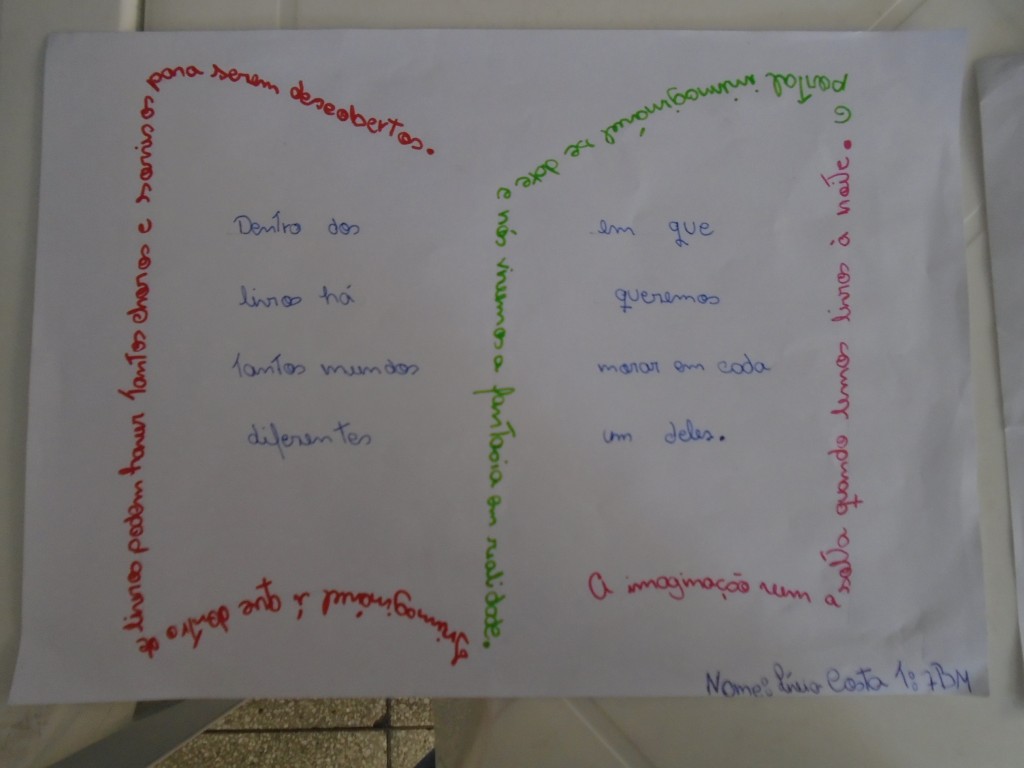 Inimaginável é que dentro de
livros podem haver tantos choros e sorrisos
para serem descobertos.
Dentro dos
livros há
tantos mundos
diferentes
em que
queremos
morar em cada
um deles.
A imaginação vem
a solta quando lemos livros à noite.
O portal inimaginável se abre
e nós viramos a fantasia em realidade.
Nome: Lívia Costa T: 7BM